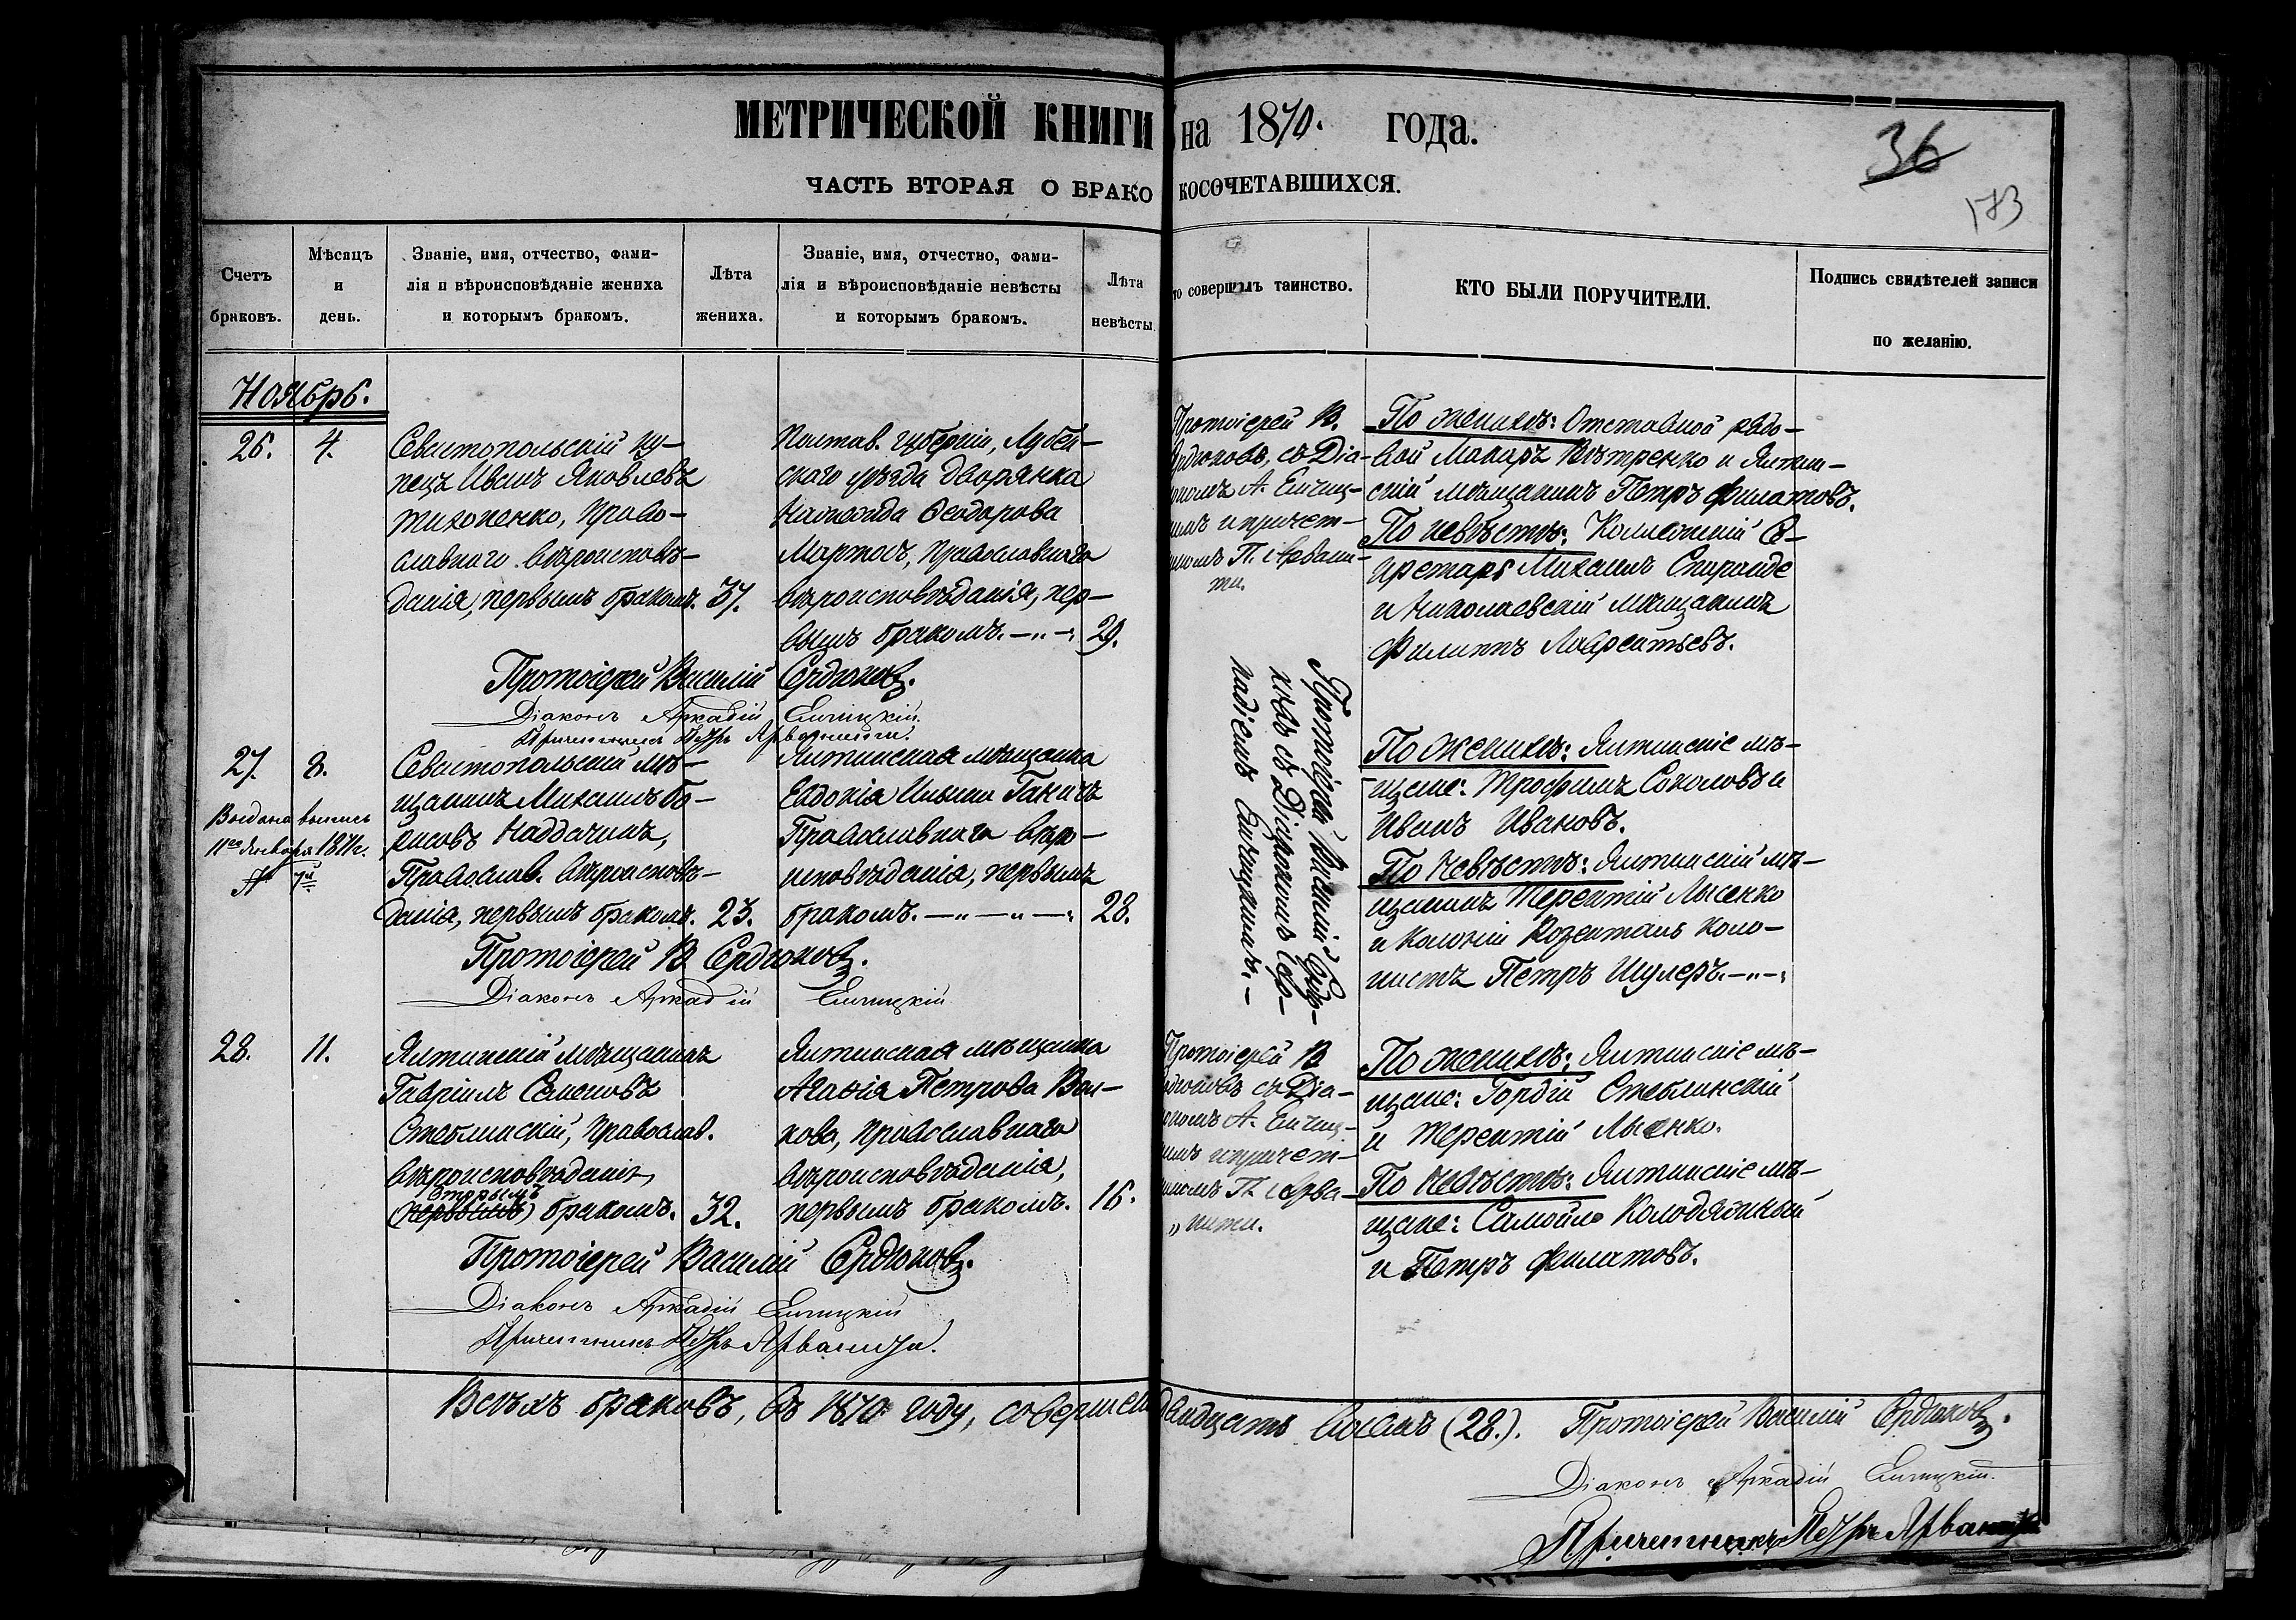 МЕТРИЧЕСКОЙ КНИГИ на 1870. года.
ЧАСТЬ ВТОРАЯ О БРАКОСОЧЕТАВШИХСЯ.
36
173
Счетъ
браковъ.
Мѣсяцъ
и
день.
Званіе, имя, отчество, фами-
лія и вѣроисповѣданіе жениха
и которымъ бракомъ.
Лѣта
жениха.
Званіе, имя, отчество, фами-
лія и вѣроисповѣданіе невѣсты
и которымъ бракомъ.
Лѣта
невѣсты.
то совершалъ таинство.
КТО БЫЛИ ПОРУЧИТЕЛИ.
Подпись свидѣтелей записи
по желанію.
Ноябрь.
26.
4.
Севастопольскій ку-
пецъ Иванъ Яковлевъ
Тихоненко, Право-
славнаго вѣроисповѣ-
данія, первымъ бракомъ.
37.
Полтав. губерніи, Лубен-
скаго уѣзда дворянка
Ѳеодорова
Мартосъ, Православнаго
вѣроисповѣданія, пер-
вымъ бракомъ. —„—
29.
Протоіерей В.
Сердюковъ, съ Діа-
кономъ А. Енчиц-
кимъ и причет-
никомъ П. Арвани-
ти.
По женихѣ: Отставной рядо-
вой Макаръ Вѣтренко и Ялтин-
скій мѣщанинъ Петръ Филатовъ.
По невѣстѣ: Коллежскій Се-
кретарь Михаилъ Спиранде
и Николаевскій мѣщанинъ
Филиппъ Лаврентьевъ.
Протоіерей Василій Сердюковъ.
Діаконъ Аркадій Енчицкій.
Причетникъ Петръ Арванити.
27.
8.
Выдана выпись
11го Января 1871г.
№ 7й
Севастопольскій мѣ-
щанинъ Михаилъ Бо-
рисовъ Наддачинъ,
Православ. вѣроисповѣ-
данія, первымъ бракомъ.
23.
Ялтинская мѣщанка
Евдокія Ильина Гакичъ
Православнаго вѣро-
исповѣданія, первымъ
бракомъ. —„—„—
28.
Протоіерей Василій Сердю-
ковъ съ Діакономъ
Енчицкимъ.—
По женихѣ: Ялтинскіе мѣ-
щане: Трофимъ Соколовъ и
Иванъ Ивановъ.
По невѣстѣ: Ялтинскій мѣ-
щанинъ Терентій Лысенко
и Колоніи Розенталь коло-
нистъ Петръ Шулеръ.—„—
Протоіерей В Сердюковъ.
Діаконъ Аркадій Енчицкій
28.
11.
Ялтинскій мѣщанинъ
Гавріилъ Семеновъ
Стеблинскій, Православ.
вѣроисповѣданія
вторымъ
(первымъ) бракомъ.
32.
Ялтинская мѣщанка
Агафія Петрова Вол-
кова, Православнаго
вѣроисповѣданія,
первымъ бракомъ.
16.
Протоіерей В
Сердюковъ съ Діа-
кономъ А. Енчиц-
кимъ и причет-
никомъ П. Арва-
„нити.
По женихѣ: Ялтинскіе мѣ-
щане: Гордій Стеблинскій
и Терентій Лысенко.
По невѣстѣ: Ялтинскіе мѣ-
щане: Самойло Колодяжный
и Петръ Филатовъ.
Протоіерей Василій Сердюковъ.
Діаконъ Аркадій Енчицкій
Причетникъ Петръ Арванити.
Всѣхъ браковъ, въ 1870 году, совершено двадцать восемь (28.). Протоіерей Василій Сердюковъ.
Діаконъ Аркадій Енчицкій.
Причетникъ Петръ Арванити